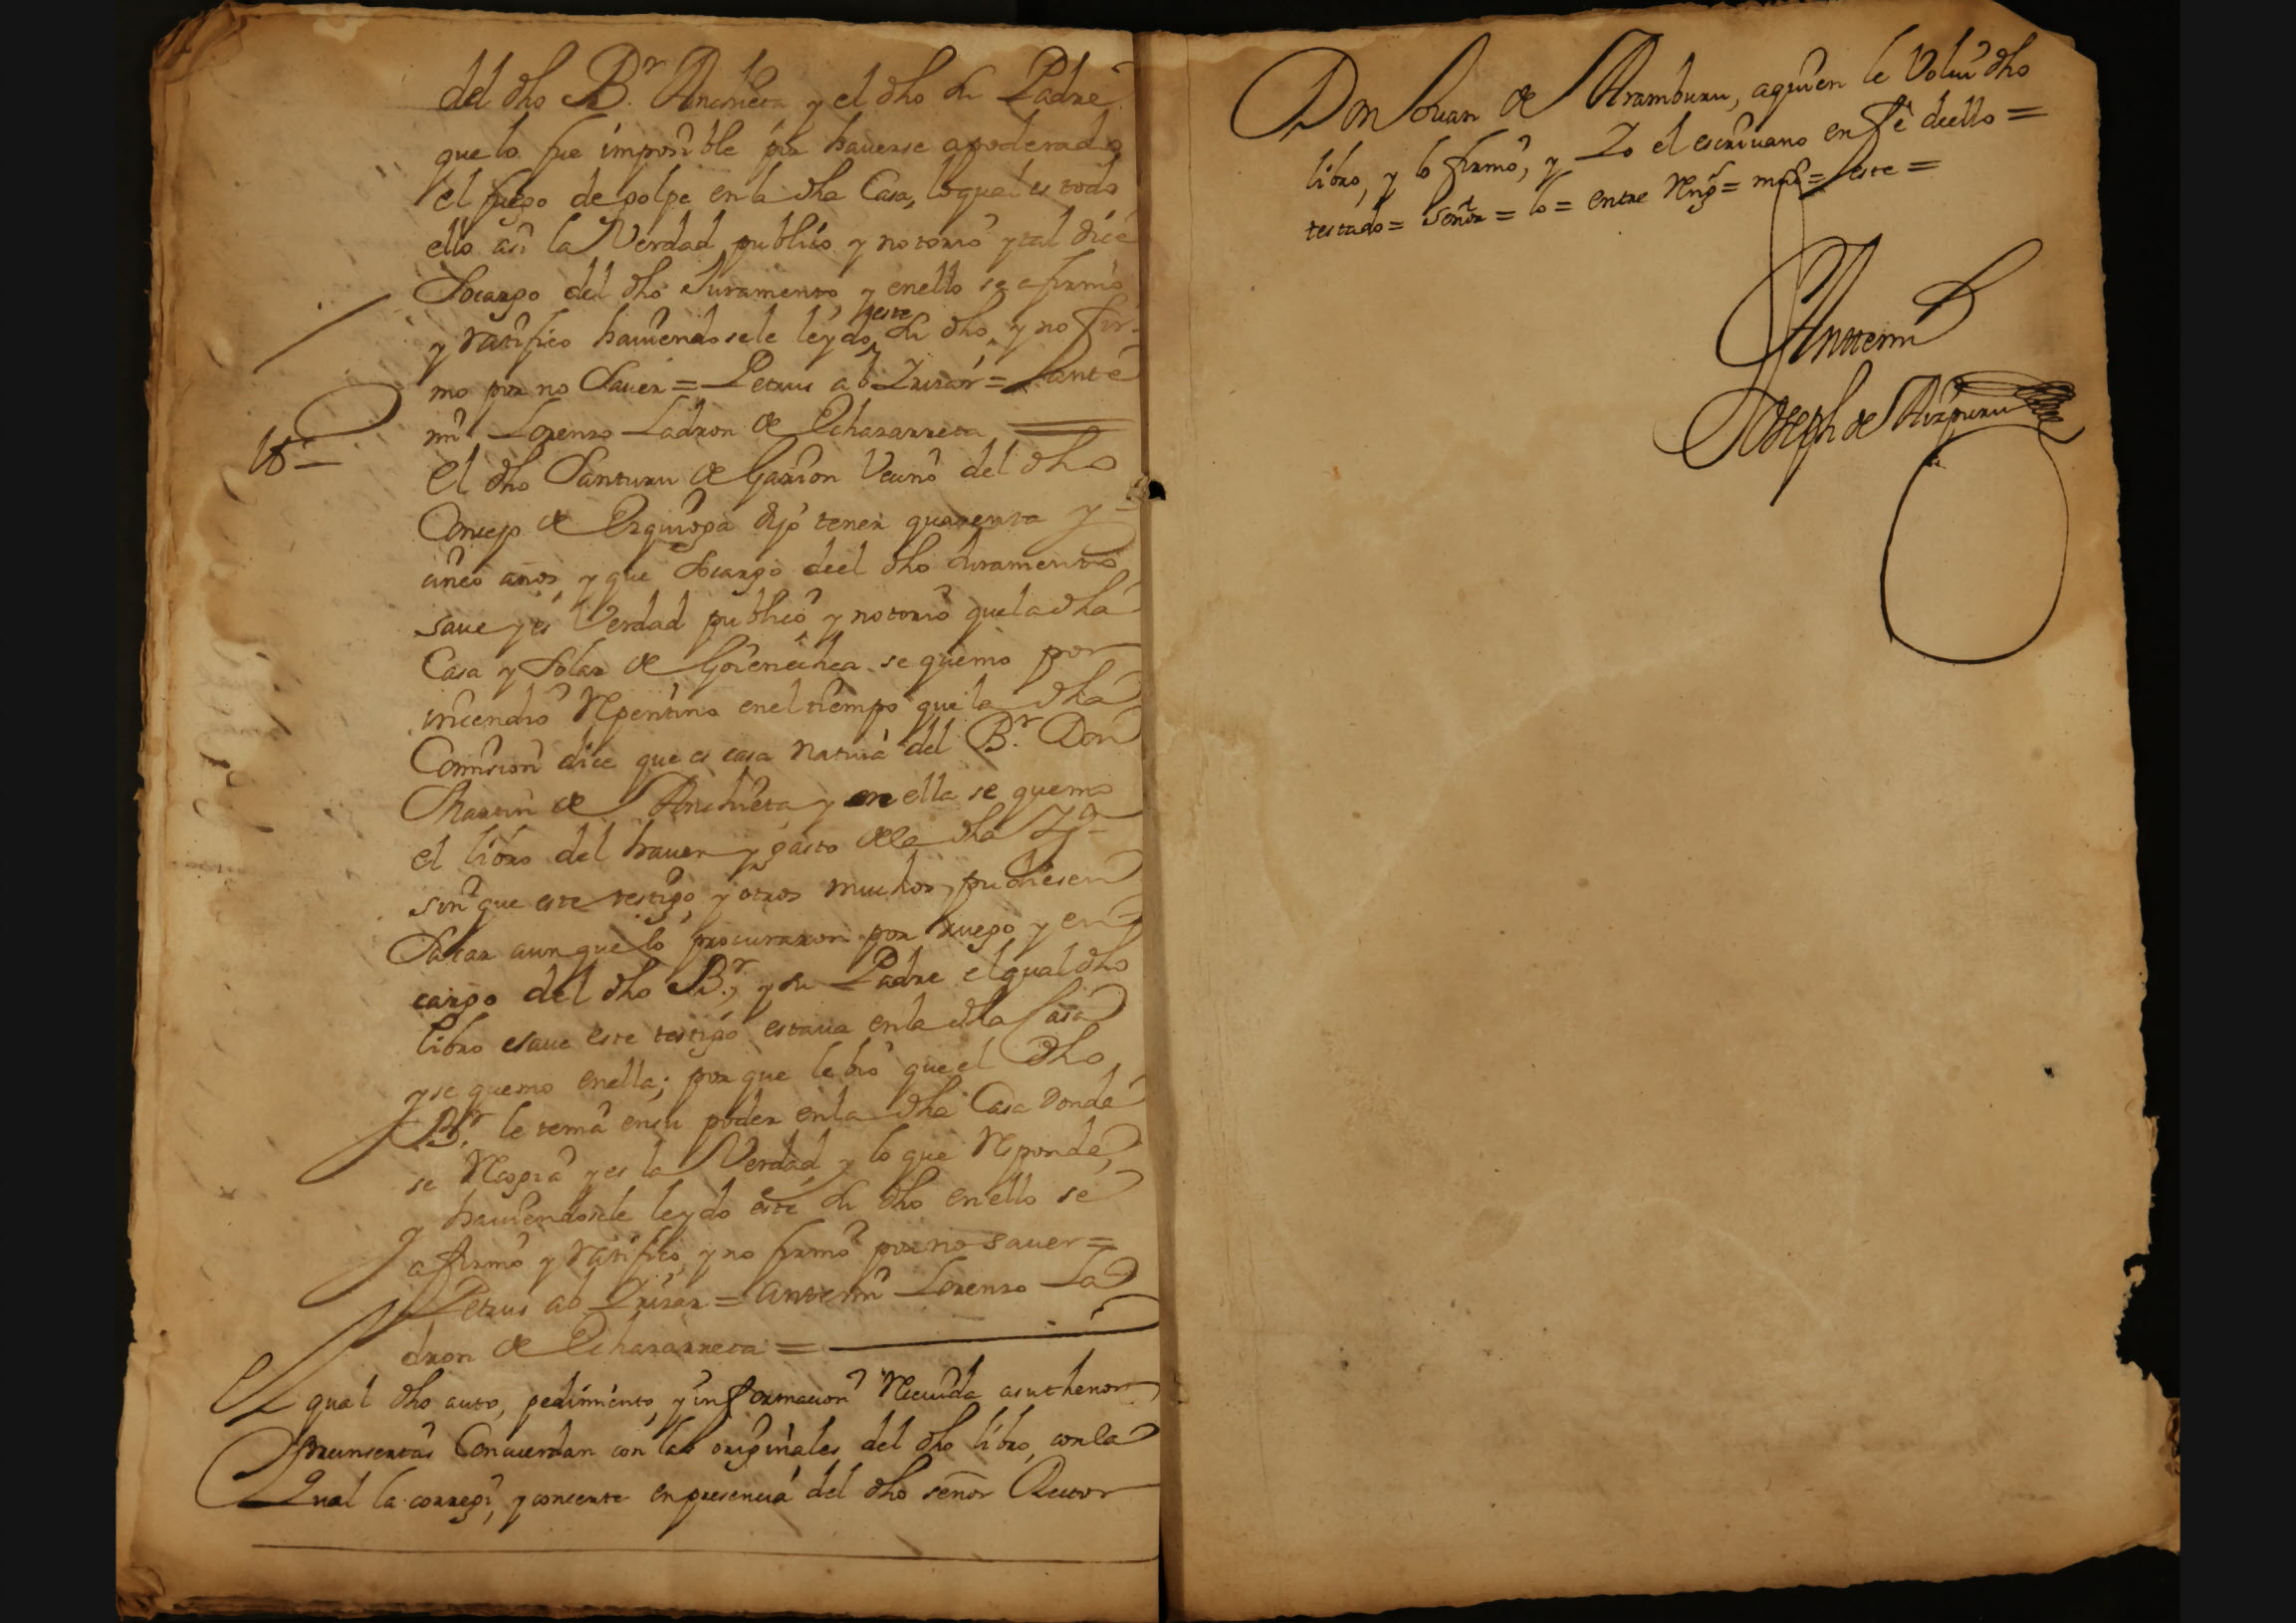 del dho B.r Anchieta y el dho su Padre
que lo fue imposible por hauerse apoderado
el fuego de golpe en la dha Casa, loqual es todo
ello asi la Verdad publico y notorio y tal dice
Socargo del dho Juramento y enello se afirmo
y ratifico hauiendosele leydo este su dho, y no fir-
mo por no Sauer = Petrus ab Yrizar = Pante
mi Lorenzo Ladron de Echazarreta
tt.o
El dho Santuru de Garzon Vecino del dho
Concejo de Ezquioga dijo tener quarenta y
cinco años, y que Socargo deel dho Juramento
saue y es Verdad publico y notorio quela dha
Casa y Solar de Goienechea se quemo por
incendio Repentino enel tiempo que la dha
Comision dice que es casa natiua del B.r Don
Martin de Anchieta, y en ella se quemo
el libro del hauer y gasto dela dha Yg.a
sin que este testigo, y otros muchos pudiesen
Sacar aunque lo procuraron por ruego y en
cargo del dho B.r, y su Padre el qual dho
libro esaue este testigo estaua enla dha Casa
y se quemo enella; por que le bio que el dho
B.r le tenia ensu poder enla dha Casa donde
se Recogia y es la Verdad y lo que Responde,
y hauiendosele leydo este su dho enello se
afirmo y ratifico, y no firmo por no sauer =
Petrus ab Yrizar = antemi Lorenzo La
dron de Echazarreta =
El qual dho auto, pedimiento, y informacion Reciuida asuthenor
preinsertas Concuerdan con las originales del dho libro, conla
Qual la corregi, y concerte en presencia del dho señor Rector
Don Joan de Aramburu, aquien le Volui dho
libro, y lo firmo, y Yo el escriuano en fe deello =
testado = Señor = lo = entre Reng.s = mo = este =
Antemi
Joseph de Aizpuru